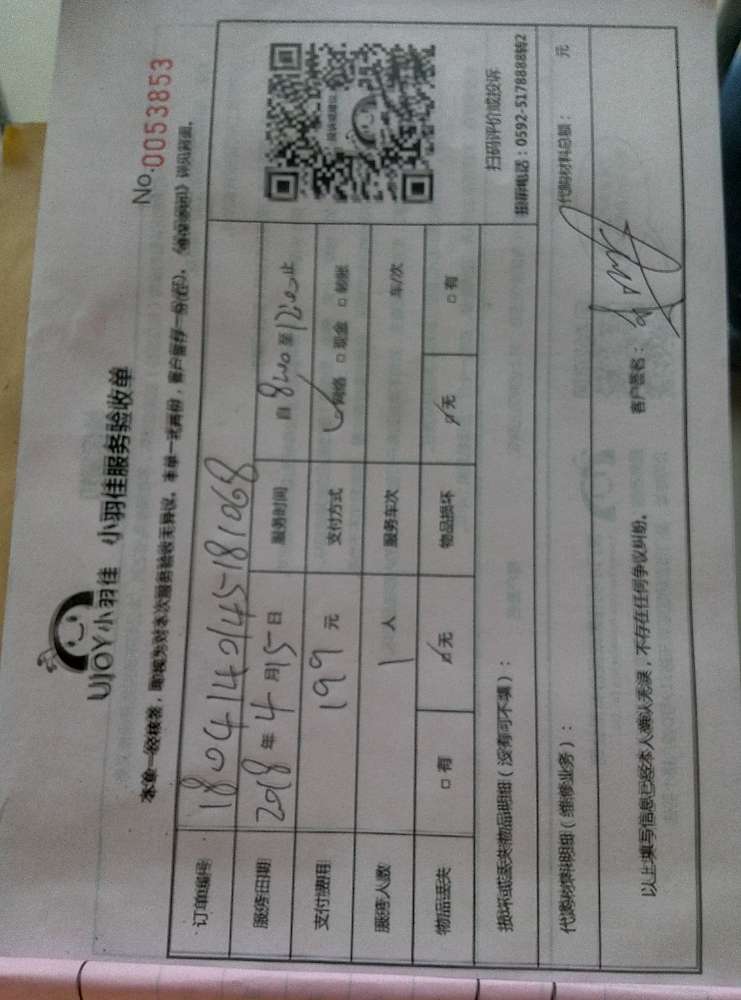 UJOY小羽佳 小羽佳服务验收单
No.0053853
本单一经核签，即视为对本次服务验收无异议。本单一式两份，客户留存一份
订单编号 180414014518 1068
服务日期 2018 年 4 月 15 日 服务时间 自 8:00 至 12:00 止
支付费用 199 元 支付方式 网络 □ 现金 □ 转账
服务人数 1 人 服务车次 车/次
物品丢失 □ 有 ☑ 无 物品损坏 ☑ 无 □ 有
扫码评价或投诉
投诉电话：0592-5178888转2
损坏或丢失物品明细（没有可不填）：
代购材料明细（维修业务）： 代购材料总额： 元
以上填写信息已经本人确认无误，不存在任何争议纠纷。 客户签名：